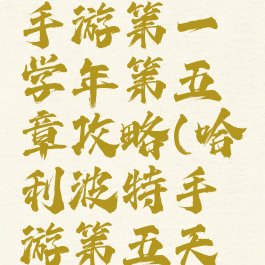 手游第一
学年第五
章攻略(哈
利波特手
游第五天